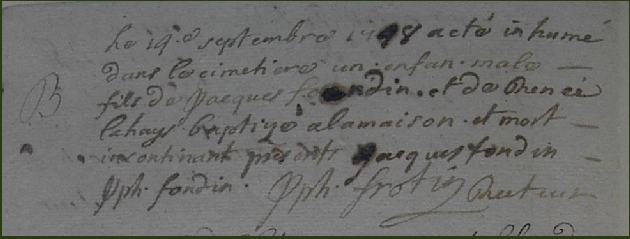 Le 19.e septembre 1748 a eté inhumé
dans le cimetiere un enfan male
B fils de Jacques fondin. et de Renée
lahay baptizé a la maison et mort
incontinant presents Jacques fondin
Jph. fondin. Jph. frotin Recteur